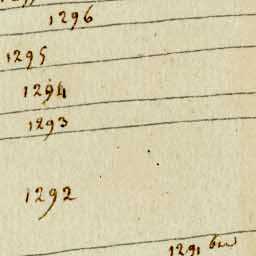 1296
1295
1294
1293
1292
1291 bis